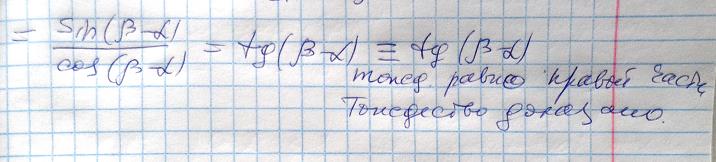 = sin(β-α) / cos(β-α) = tg(β-α) ≡ tg(β-α)
тожд. равно правой части
Тождество доказано.